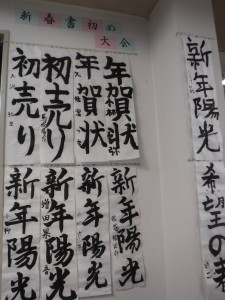 新春書初め
大会
年賀状
年賀状
初売り
初売り
新年陽光
新年陽光
新年陽光
新年陽光
新年陽光
希望の